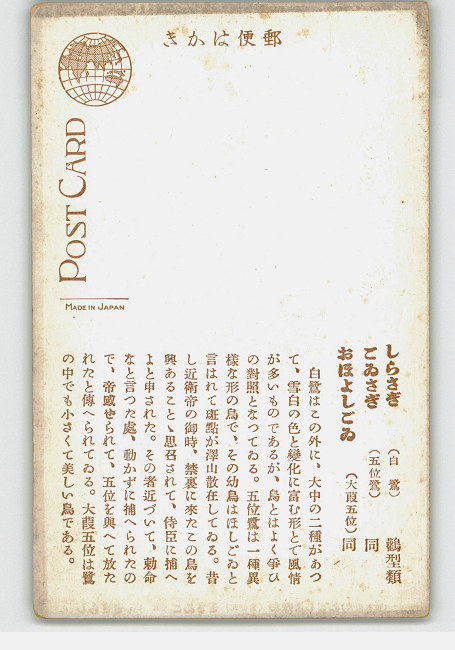 きかは便郵
POST CARD
MADE IN JAPAN
しらさぎ (白鷺) 鸛型類
ごゐさぎ (五位鷺) 同
おほよしごゐ (大葭五位) 同
白鷺はこの外に、大中の二種があつ
て、雪白の色と變化に富む形とで風情
が多いものであるが、烏とはよく爭ひ
の對照となつてゐる。五位鷺は一種異
樣な形の鳥で、その幼鳥はほしごゐと
言はれて斑點が澤山散在してゐる。昔
し近衛帝の御時、禁裏に來たこの鳥を
興あることゝ思召されて、侍臣に捕へ
よと申された。その者近づいて、勅命
なと言つた處、動かずに捕へられたの
で、帝感せられて、五位を與へて放た
れたと傳へられてゐる。大葭五位は鷺
の中でも小さくて美しい鳥である。